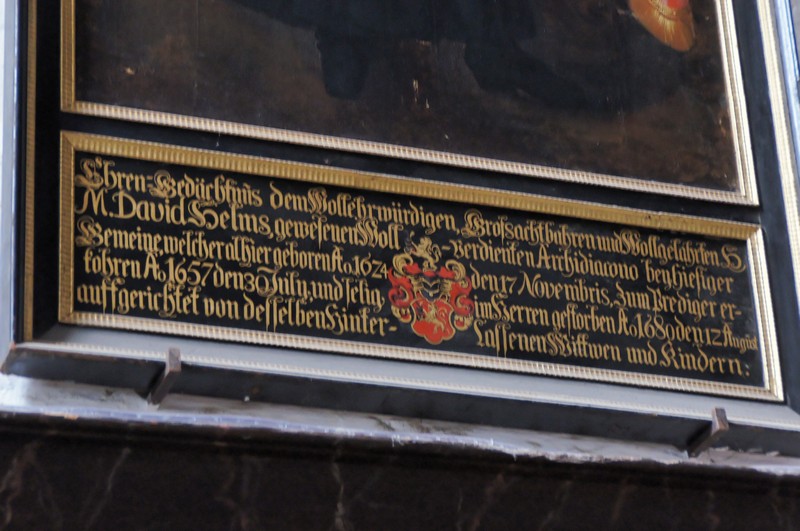 Ehren-Gedächtnüs dem Wollehrwürdigen, Großachtbahren und Wollgelahrten H
M. David Helms, gewesenen Woll-verdienten Archidiacono bey hiesiger
Gemeine, welcher alhier geboren Ao. 1624 den 17 Novembris, zum Prediger er-
kohren Ao 1657 den 30 July, und selig im Herren gestorben Ao 1689 den 12 August
auffgerichtet von desselben Hinter-Lassenen Wittwen und Kindern: